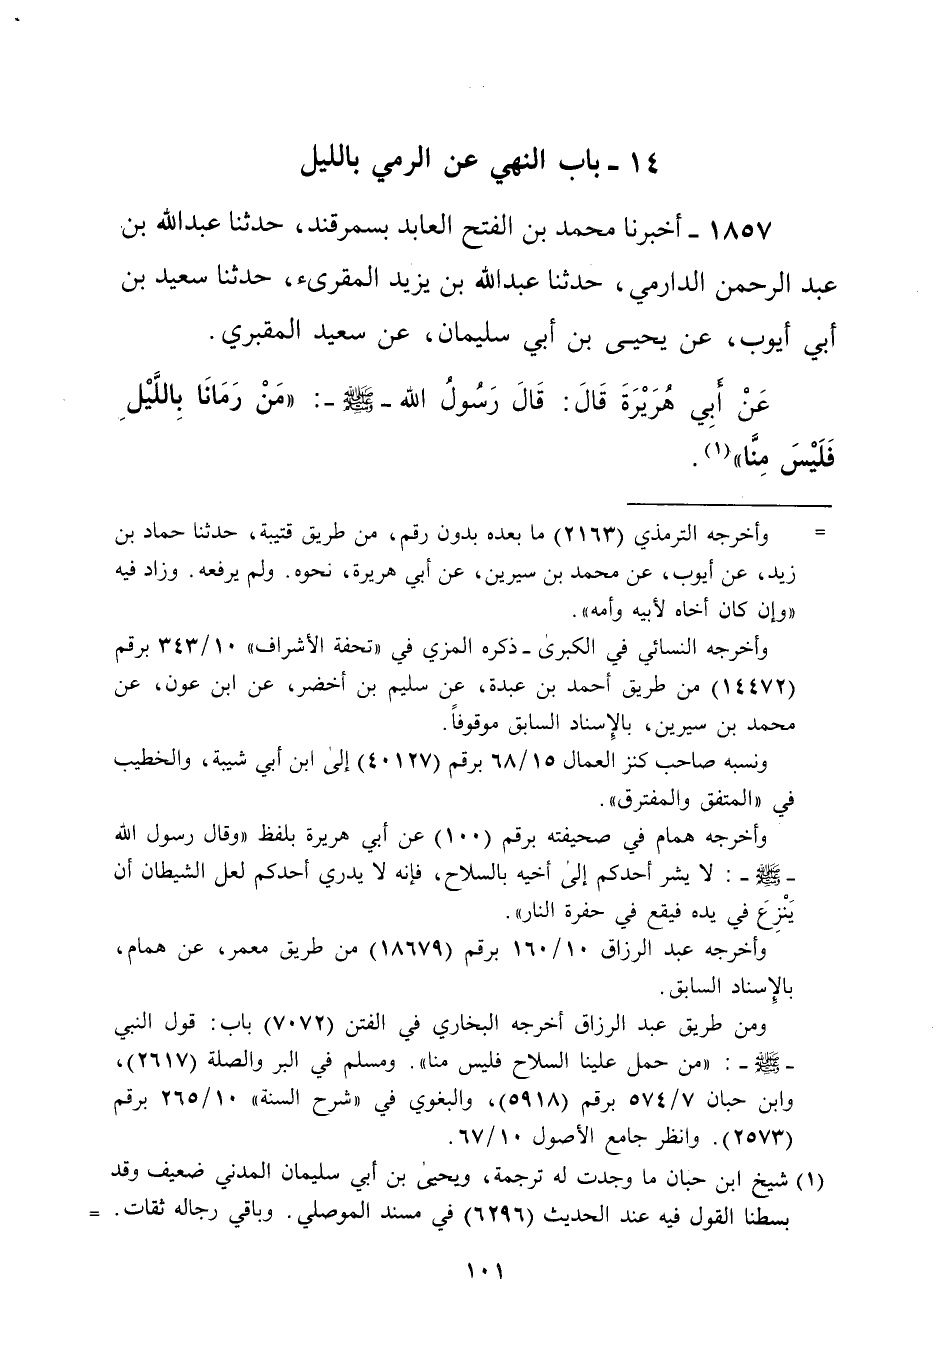 ١٤ ـ باب النهي عن الرمي بالليل
١٨٥٧ ـ أخبرنا محمد بن الفتح العابد بسمرقند، حدثنا عبدالله بن
عبد الرحمن الدارمي، حدثنا عبدالله بن يزيد المقرىء، حدثنا سعيد بن
أبي أيوب، عن يحيـى بن أبي سليمان، عن سعيد المقبري.
عَنْ أَبِي هُرَيْرَةَ قَالَ: قَالَ رَسُولُ الله ـ ﷺ ـ: «مَنْ رَمَانَا بِاللَّيْلِ
فَلَيْسَ مِنَّا»(١).
= وأخرجه الترمذي (٢١٦٣) ما بعده بدون رقم، من طريق قتيبة، حدثنا حماد بن
زيد، عن أيوب، عن محمد بن سيرين، عن أبي هريرة، نحوه. ولم يرفعه. وزاد فيه
«وإن كان أخاه لأبيه وأمه».
وأخرجه النسائي في الكبرىٰ ـ ذكره المزي في «تحفة الأشراف» ٣٤٣/١٠ برقم
(١٤٤٧٢) من طريق أحمد بن عبدة، عن سليم بن أخضر، عن ابن عون، عن
محمد بن سيرين، بالإسناد السابق موقوفاً.
ونسبه صاحب كنز العمال ٦٨/١٥ برقم (٤٠١٢٧) إلىٰ ابن أبي شيبة، والخطيب
في «المتفق والمفترق».
وأخرجه همام في صحيفته برقم (١٠٠) عن أبي هريرة بلفظ «وقال رسول الله
ـ ﷺ ـ : لا يشر أحدكم إلىٰ أخيه بالسلاح، فإنه لا يدري أحدكم لعل الشيطان أن
يَنْزِعَ في يده فيقع في حفرة النار».
وأخرجه عبد الرزاق ١٦٠/١٠ برقم (١٨٦٧٩) من طريق معمر، عن همام،
بالإسناد السابق.
ومن طريق عبد الرزاق أخرجه البخاري في الفتن (٧٠٧٢) باب: قول النبي
ـ ﷺ ـ : «من حمل علينا السلاح فليس منا». ومسلم في البر والصلة (٢٦١٧)،
وابن حبان ٥٧٤/٧ برقم (٥٩١٨)، والبغوي في «شرح السنة» ٢٦٥/١٠ برقم
(٢٥٧٣). وانظر جامع الأصول ٦٧/١٠.
(١) شيخ ابن حبان ما وجدت له ترجمة، ويحيىٰ بن أبي سليمان المدني ضعيف وقد
بسطنا القول فيه عند الحديث (٦٢٩٦) في مسند الموصلي. وباقي رجاله ثقات. =
١٠١